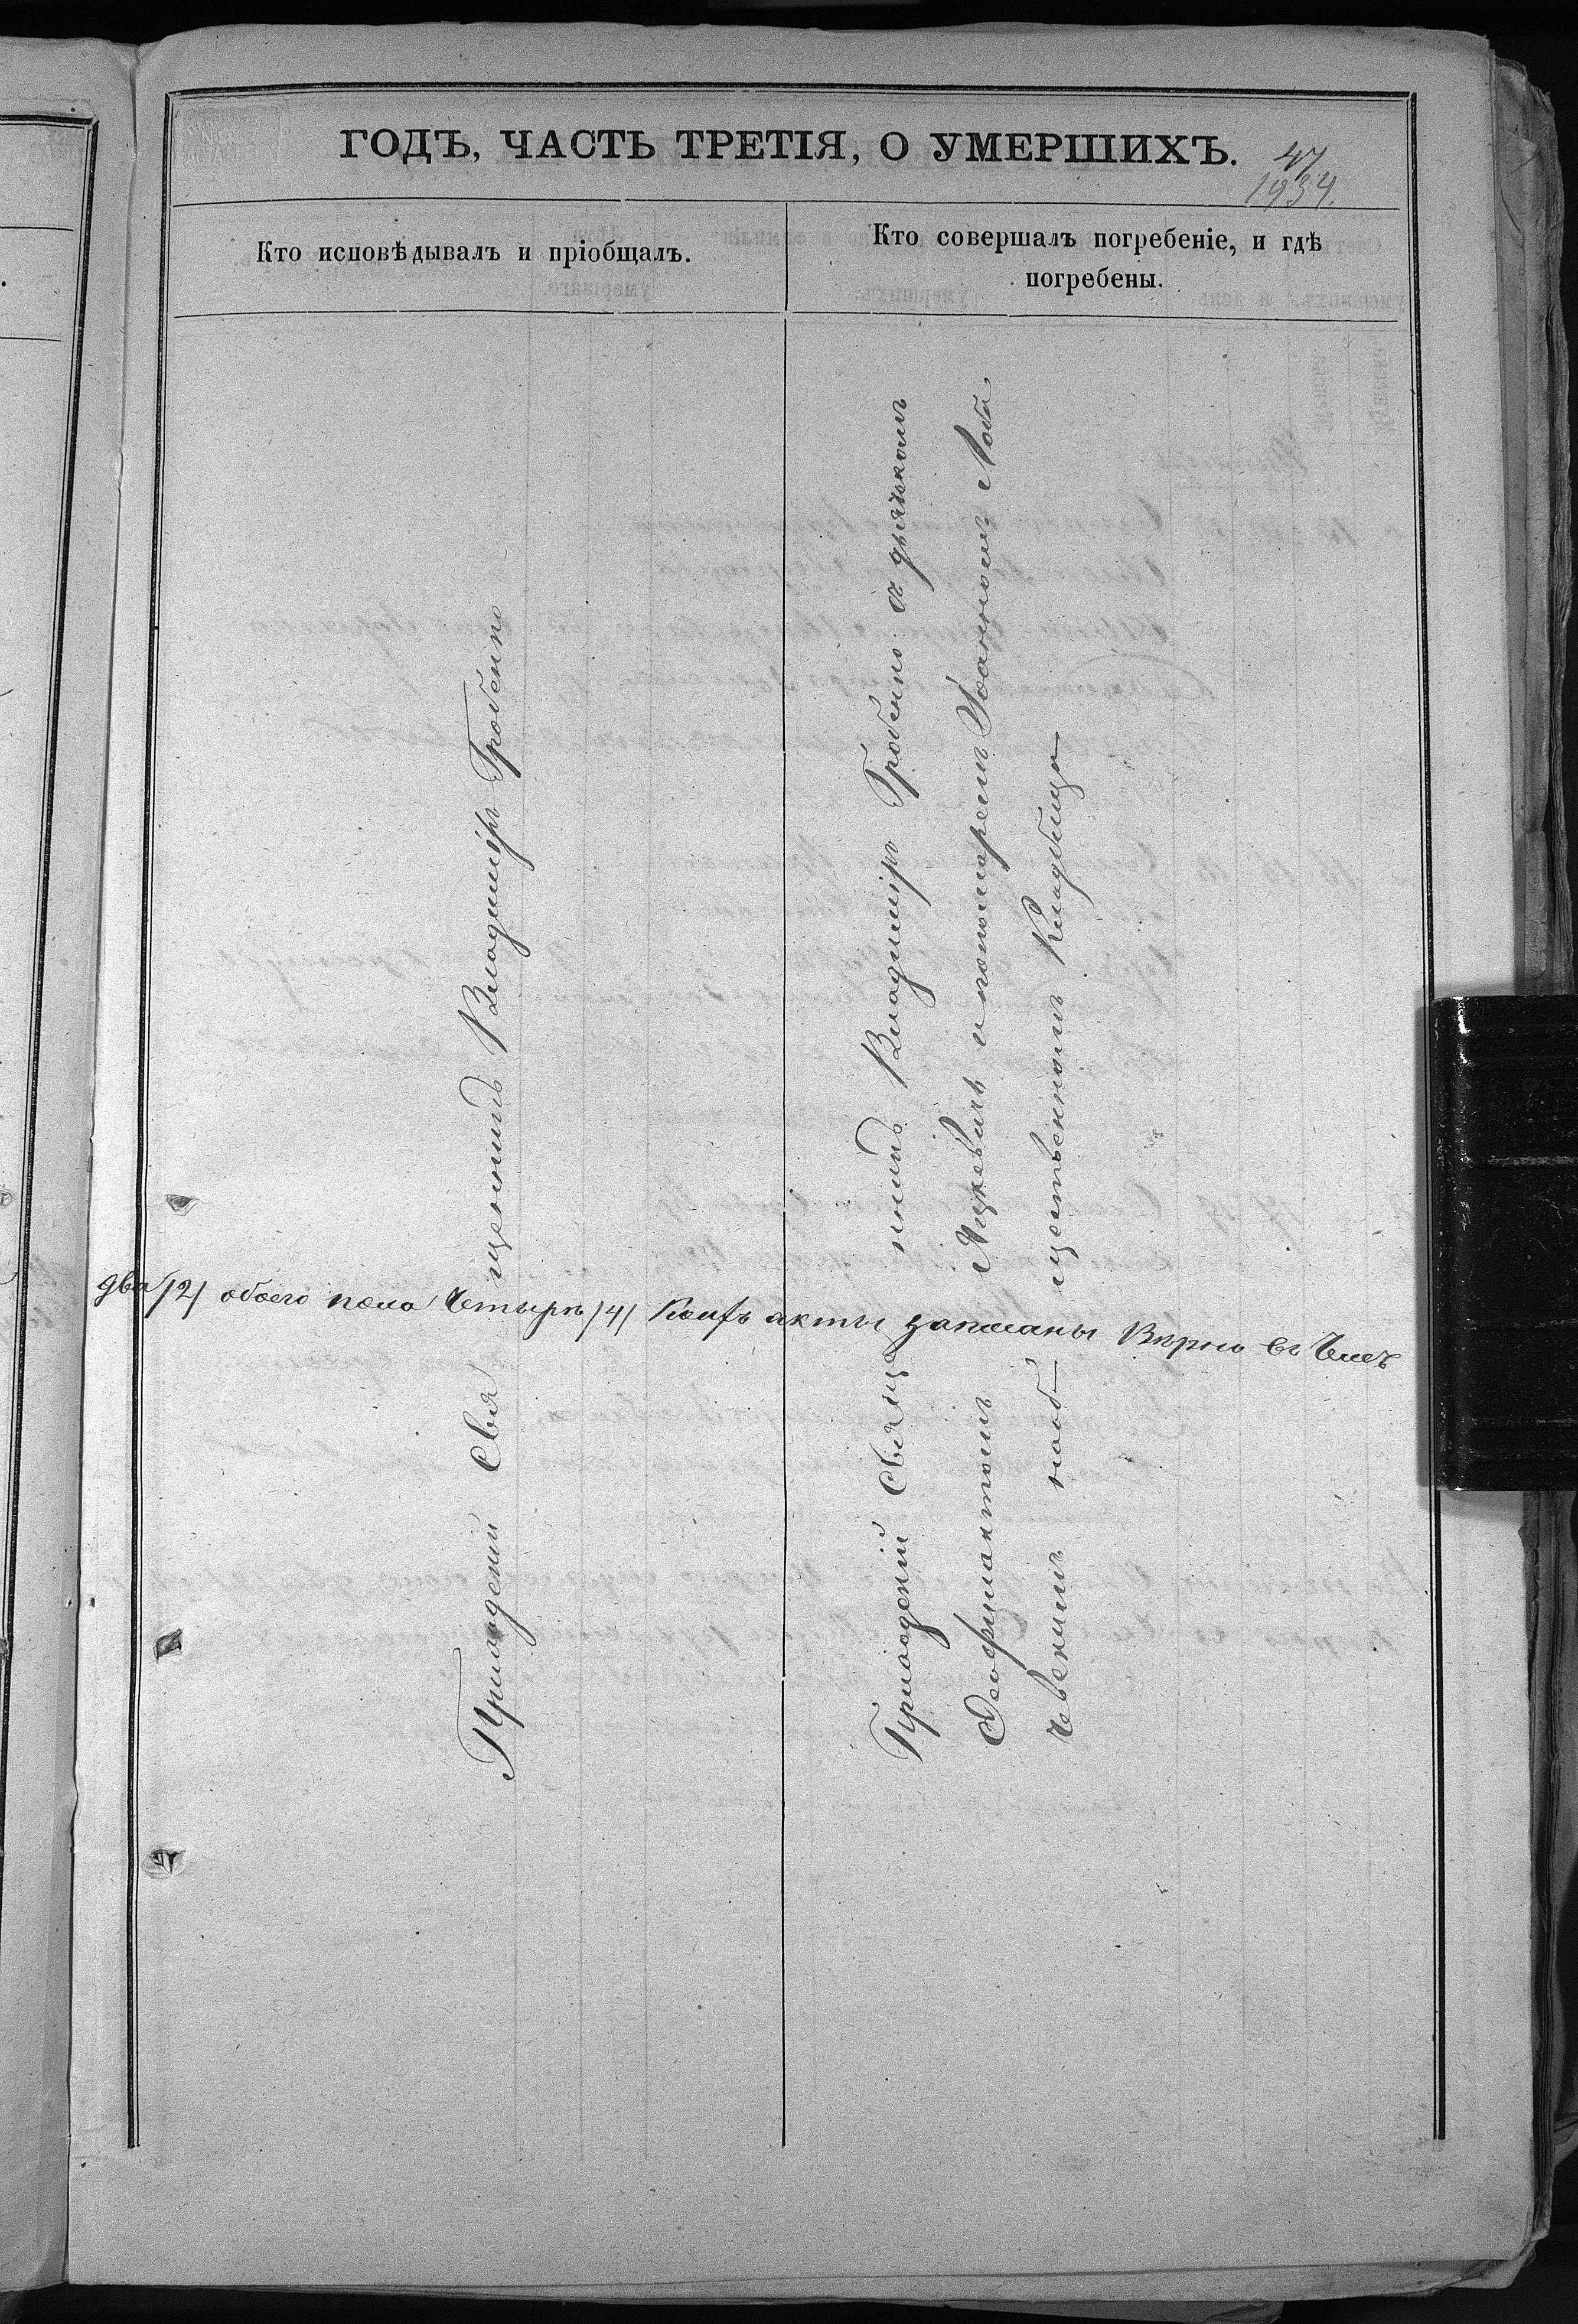 ГОДЪ, ЧАСТЬ ТРЕТІЯ, О УМЕРШИХЪ.
47
1934.
Кто исповѣдывалъ и пріобщалъ.
Кто совершалъ погребеніе, и гдѣ
погребены.
Приходскій Свя щенникъ Владиміръ Гробенко
Приходскій Свяще нникъ Владиміръ Гробенко съ дьячкомъ
Ѳеофилактомъ и пономаремъ Іоанномъ
нооб щественномъ Кладбищѣ
два /2/ обоего пола Четыре /4/ акты записаны Вѣрно въ Чемъ